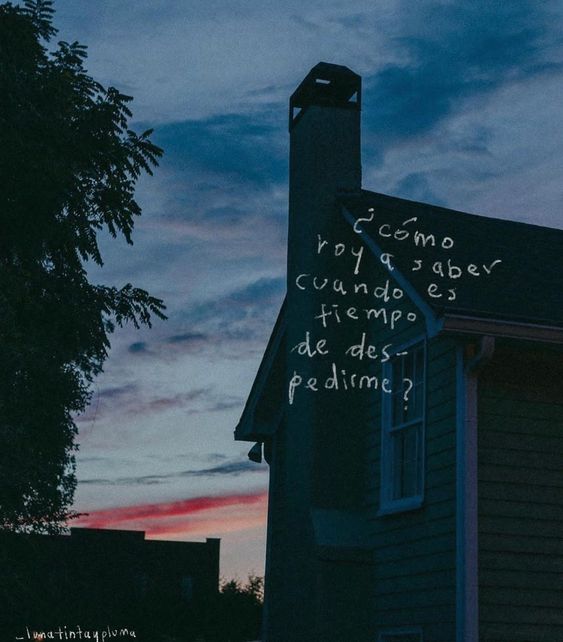 ¿cómo
voy a saber
cuando es
tiempo
de des-
pedirme?
_lunatintaypluma